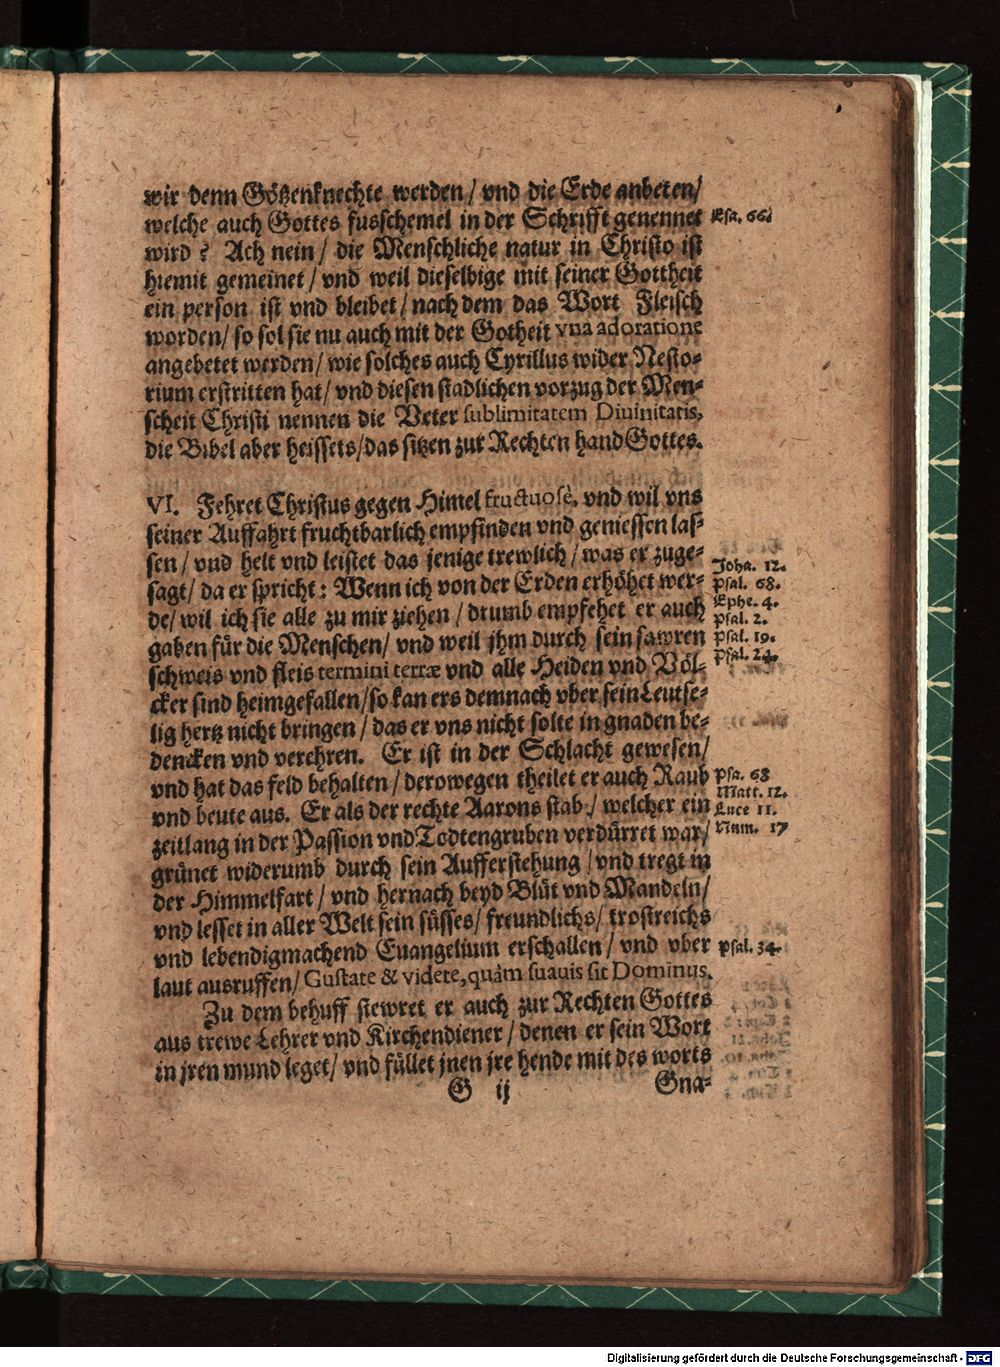 wir denn Götzenknechte werden/ vnd die Erde anbeten/
welche auch Gottes fusschemel in der Schrifft genennet
Psa. 66.
wird? Ach nein/ die Menschliche natur in Christo ist
hiemit gemeinet/ vnd weil dieselbige mit seiner Gottheit
ein person ist vnd bleibet/ nach dem das Wort Fleisch
worden/ so sol sie nu auch mit der Gotheit vna adoratione
angebetet werden/ wie solches auch Cyrillus wider Nesto-
rium erstritten hat/ vnd diesen stadlichen vorzug der Men-
scheit Christi nennen die Veter sublimitatem Diuinitatis,
die Bibel aber heissets/ das sitzen zur Rechten hand Gottes.
VI. Fehret Christus gegen Himel fructuosè, vnd wil vns
seiner Auffahrt fruchtbarlich empfinden vnd geniessen las-
sen/ vnd helt vnd leistet das jenige trewlich/ was er zuge-
sagt/ da er spricht: Wenn ich von der Erden erhöhet wer-
de/ wil ich sie alle zu mir ziehen/ drumb empfehet er auch
gaben für die Menschen/ vnd weil jhm durch sein sawren
schweis vnd fleis termini terræ vnd alle Heiden vnd Völ-
cker sind heimgefallen/ so kan ers demnach vber sein Leutse-
lig hertz nicht bringen/ das er vns nicht solte in gnaden be-
dencken vnd verehren. Er ist in der Schlacht gewesen/
vnd hat das feld behalten/ derowegen theilet er auch Raub
vnd beute aus. Er als der rechte Aarons stab/ welcher ein
zeitlang in der Passion vnd Todtengruben verdürret war/
grünet widerumb durch sein Aufferstehung/ vnd tregt in
der Himmelfart/ vnd hernach beyd Blüt vnd Mandeln/
vnd lesset in aller Welt sein süsses/ freundlichs/ trostreichs
vnd lebendigmachend Euangelium erschallen/ vnd vber
laut ausruffen/ Gustate & videte, quàm suauis sit Dominus.
Joha. 12.
Psal. 68.
Ephe. 4.
Psal. 2.
Psal. 19.
Psal. 24.
Psa. 68
Matt. 12.
Luce 11.
Num. 17
Psal. 34.
Zu dem behuff stewret er auch zur Rechten Gottes
aus trewe Lehrer vnd Kirchendiener/ denen er sein Wort
in jren mund leget/ vnd füllet jnen jre hende mit des worts
G ij
Gna-
Digitalisierung gefördert durch die Deutsche Forschungsgemeinschaft - DFG